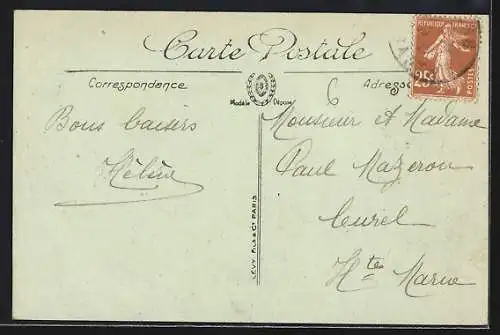 Carte Postale
Correspondance
Adresse
Modèle Déposé
RÉPUBLIQUE FRANÇAISE
25c
POSTES
6
Bons baisers
Hélène
Monsieur et Madame
Paul Mazeron
Curel
Hte Marne
LEVY FILS & Cie PARIS